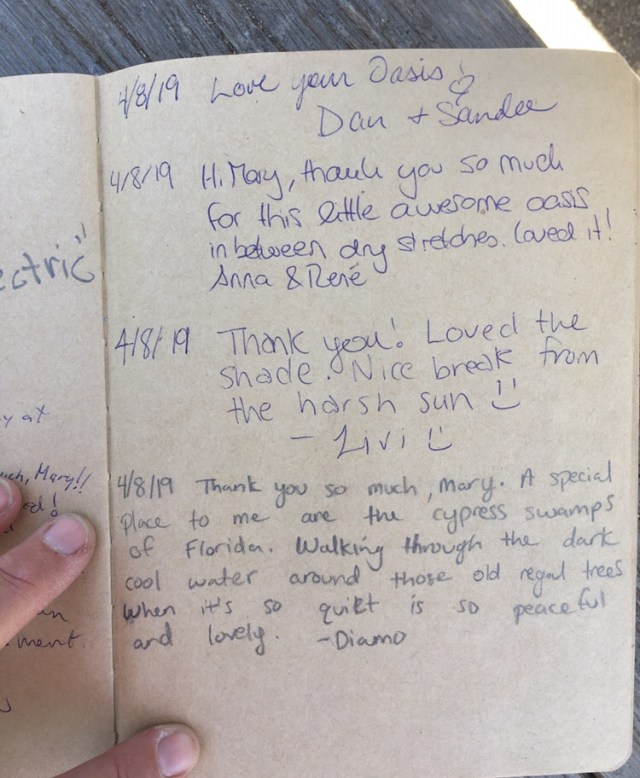 ectric"
y at
ch, Mary!!
ed!
an
ment
4/8/19 Love your Oasis!
Dan + Sandee
4/8/19 Hi Mary, thank you so much
for this little awesome oasis
in between dry stretches. Loved it!
Anna & René
4/8/19 Thank you! Loved the
shade. Nice break from
the harsh sun
- Livi
4/8/19 Thank you so much, Mary. A special
place to me are the cypress swamps
of Florida. Walking through the dark
cool water around those old regal trees
when it's so quiet is so peaceful
and lovely. -Diamo